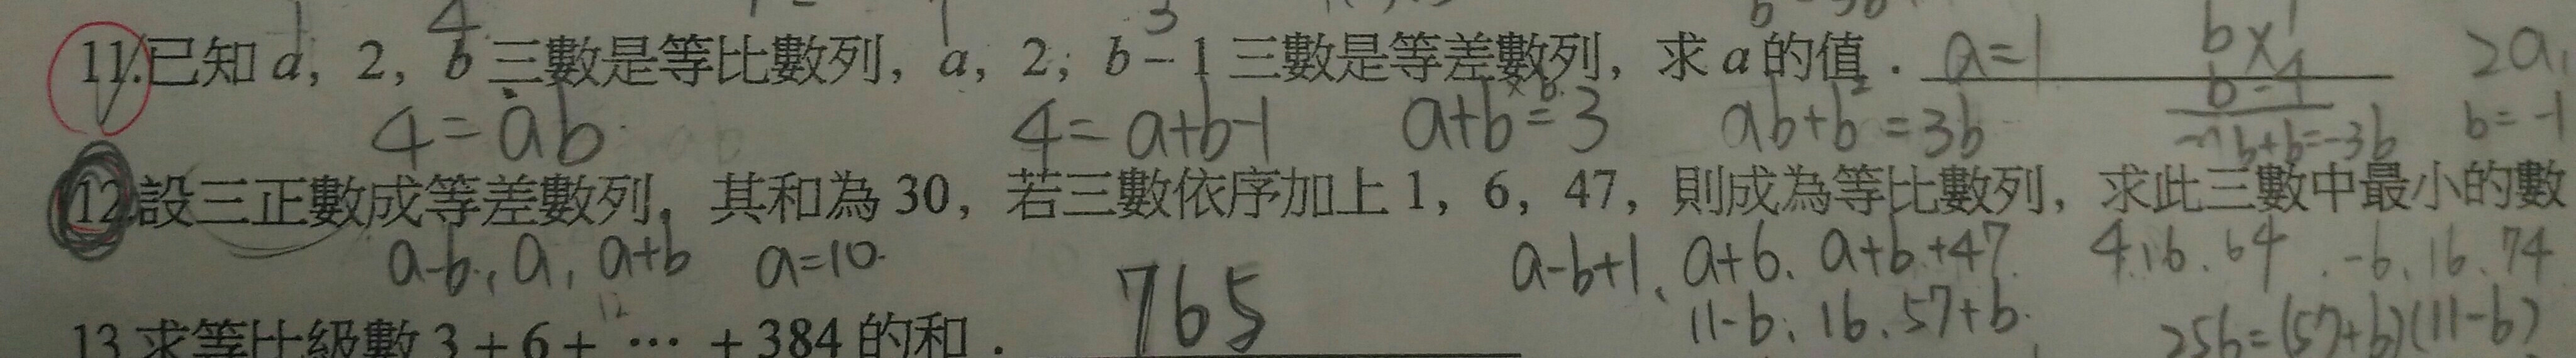 11.已知 a, 2, b 三數是等比數列, a, 2, b－1 三數是等差數列, 求 a 的值. a=1
1 4 1 3
4=ab 4=a+b-1 a+b=3 ab+b²=3b
b=-1
12.設三正數成等差數列, 其和為 30, 若三數依序加上 1, 6, 47, 則成為等比數列, 求此三數中最小的數
a-b, a, a+b a=10. a-b+1、a+6、a+b+47 4.16.64 . -6.16.74
11-b、16、57+b. 256=(57+b)(11-b)
13.求等比級數 3 + 6 + 12 ⋯ + 384 的和. 765